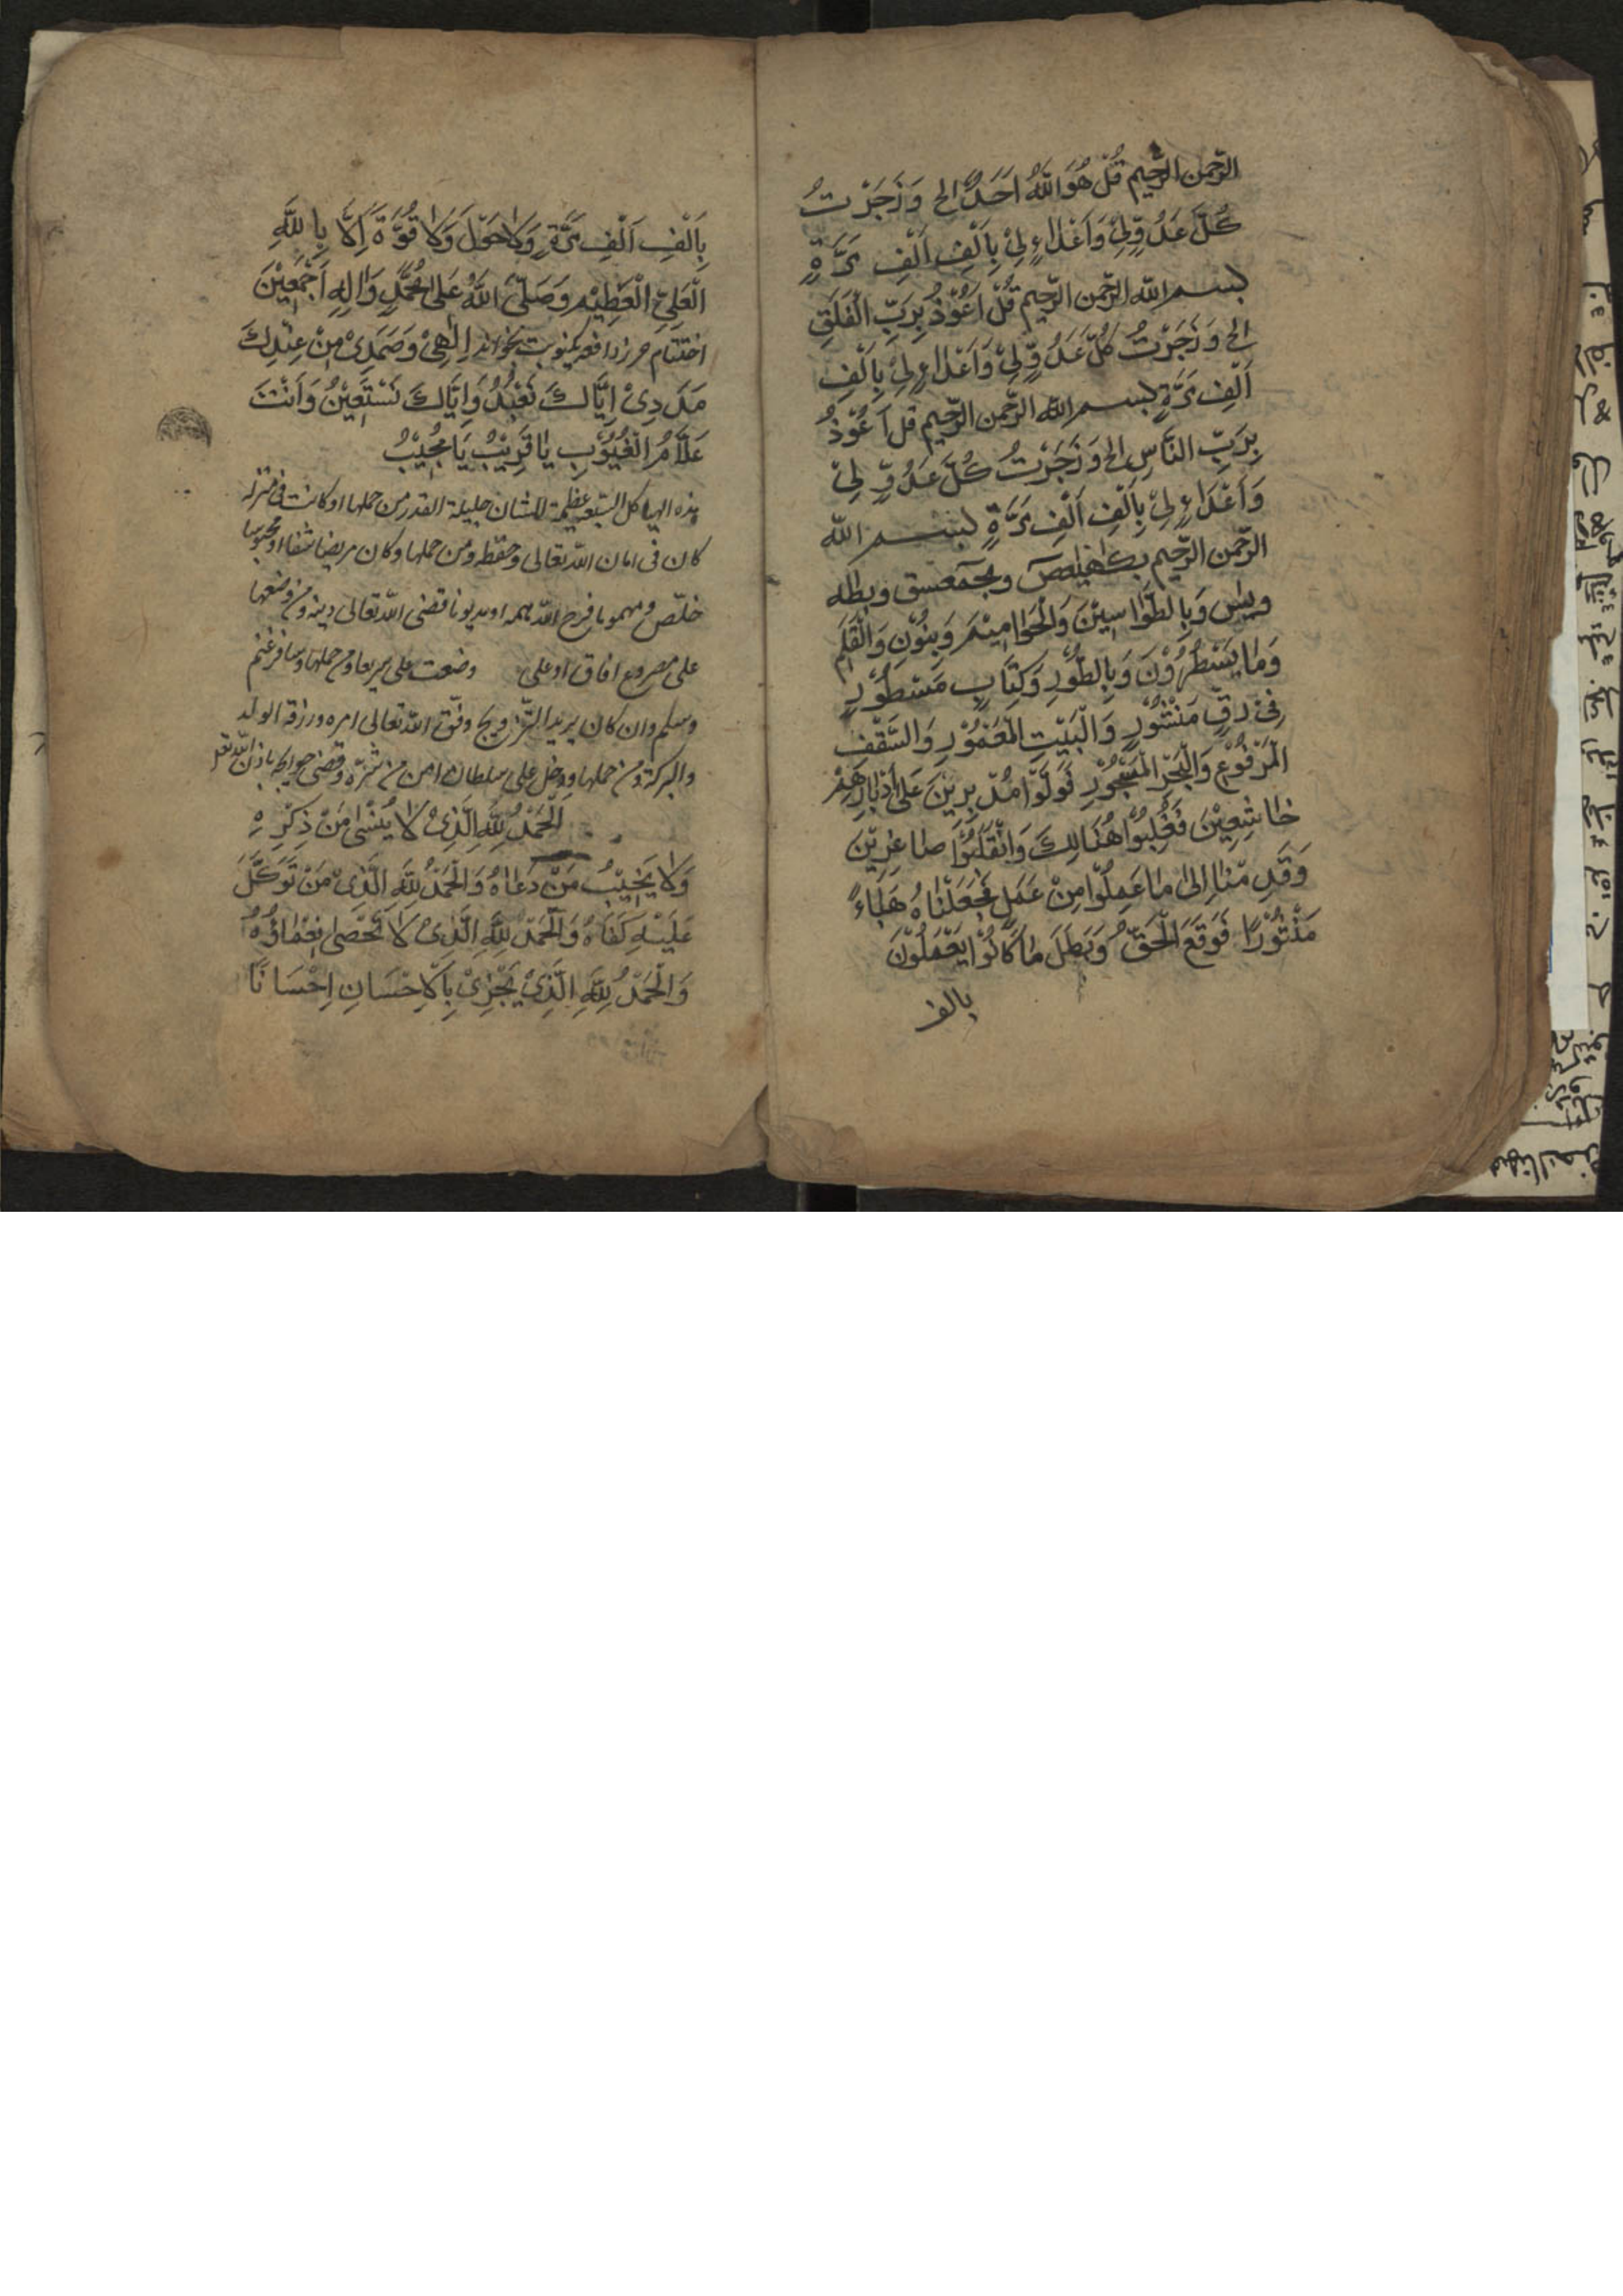 الرّحمن الرّحيم قُلْ هُوَ اللّٰهُ اَحَدٌ الخ وَزَجَرْتُ
كُلَّ عَدُوٍّ لِيْ وَاَعْدَاءٍ لِيْ بِاَلْفِ اَلْفِ مَرَّةٍ
بسم اللّه الرّحمن الرّحيم قُلْ اَعُوْذُ بِرَبِّ الْفَلَقِ
الخ وَزَجَرْتُ كُلَّ عَدُوٍّ لِيْ وَاَعْدَاءٍ لِيْ بِاَلْفِ
اَلْفِ مَرَّةٍ بسم اللّه الرّحمن الرّحيم قل اَعُوْذُ
بِرَبِّ النَّاسِ الخ وَزَجَرْتُ كُلَّ عَدُوٍّ لِيْ
وَاَعْدَاءٍ لِيْ بِاَلْفِ اَلْفِ مَرَّةٍ بسم اللّه
الرّحمن الرّحيم بكهيعص وبحمعسق وبطه
ويس وَبِالطَّوَاسِيْنَ وَالْحَوَامِيْمَ وَبِنُوْنِ وَالْقَلَمِ
وَمَا يَسْطُرُوْنَ وَبِالطُّوْرِ وَكِتَابٍ مَسْطُوْرٍ
فِيْ رَقٍّ مَنْشُوْرٍ وَالْبَيْتِ الْمَعْمُوْرِ وَالسَّقْفِ
الْمَرْفُوْعِ وَالْبَحْرِ الْمَسْجُوْرِ فَوَلَّوْا مُدْبِرِيْنَ عَلىٰ اَدْبَارِهِمْ
خَاشِعِيْنَ فَغُلِبُوْا هُنَالِكَ وَانْقَلَبُوْا صَاغِرِيْنَ
وَقَدِمْنَا اِلىٰ مَا عَمِلُوْا مِنْ عَمَلٍ فَجَعَلْنَاهُ هَبَاءً
مَنْثُوْرًا فَوَقَعَ الْحَقُّ وَبَطَلَ مَا كَانُوْا يَعْمَلُوْنَ
بالف
بِاَلْفِ اَلْفِ مَرَّةٍ وَلَا حَوْلَ وَلَا قُوَّةَ اِلَّا بِاللّٰهِ
الْعَلِيِّ الْعَظِيْمِ وَصَلَّى اللّٰهُ عَلىٰ مُحَمَّدٍ وَاٰلِهِ اَجْمَعِيْنَ
اختتام حرز دافعه يكنوبت بخواند اِلٰهِيْ وَصَمَدِيْ مِنْ عِنْدِكَ
مَدَدِيْ اِيَّاكَ نَعْبُدُ وَاِيَّاكَ نَسْتَعِيْنُ وَاَنْتَ
عَلَّامُ الْغُيُوْبِ يَا قَرِيْبُ يَا مُجِيْبُ
هذه الهياكل السّبعه عظيمة الشان جليلة القدر من حملها او كانت فى منزله
كان فى امان اللّه تعالى وحفظه ومن حملها وكان مريضا شفا او محبوسا
خلّص ومهموما فرح اللّه همه او مديونا قضى اللّه تعالى دينه ومن وضعها
على مصروع افاق او على وضعت على سريعا ومن حملها وسافر غنم
وسلم وان كان يريد التّزويج وفّق اللّه تعالى امره ورزقه الولد
والبركة ومن حملها ودخل على سلطان امن من شرّه وقضى حوايجه باذن اللّه تعالى
اَلْحَمْدُ لِلّٰهِ الَّذِيْ لَا يُنْسٰى مَنْ ذِكْرِهِ
وَلَا يُخَيِّبُ مَنْ دَعَاهُ وَالْحَمْدُ لِلّٰهِ الَّذِيْ مَنْ تَوَكَّلَ
عَلَيْهِ كَفَاهُ وَالْحَمْدُ لِلّٰهِ الَّذِيْ لَا تُحْصٰى نِعْمَاؤُهُ
وَالْحَمْدُ لِلّٰهِ الَّذِيْ يَجْزِيْ بِالْاِحْسَانِ اِحْسَانًا